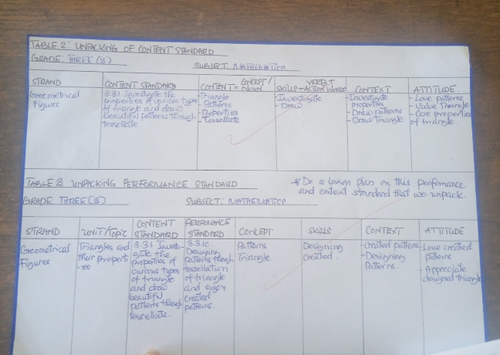 TABLE 2: UNPACKING OF CONTENT STANDARD
GRADE: THREE (3) SUBJECT: MATHEMATICS
STRAND
CONTENT STANDARD
CONCEPT/
CONTENT = NOUN
VERB
SKILLS = ACTION WORD
CONTEXT
ATTITUDE
Geometrical
Figures
3.3.1 Investigate the
properties of various types
of triangle and draw
beautiful patterns through
tessellate
- Triangle
- Patterns
- Properties
- Tessellate
Investigate
Draw
- Investigate
properties
- Draw patterns
- Draw Triangle
- Love patterns
- Value Triangle
- Care properties
of triangle
TABLE 3: UNPACKING PERFORMANCE STANDARD
* Do a lesson plan on this performance
and content standard that we unpack.
GRADE THREE (3) SUBJECT: MATHEMATICS
STRAND
UNIT/TOPIC
CONTENT
STANDARD
PERFORMANCE
STANDARD
CONCEPT
SKILLS
CONTEXT
ATTITUDE
Geometrical
Figures
Triangles and
their propert
- es
3.3.1 Invest-
gate the
properties of
various types
of triangle
and draw
beautiful
patterns though
tessellate.
Designing
patterns though
tessellation
of triangle
and enjoy
created
patterns.
Patterns
Triangle
Designing
created.
- Created patterns
- Designing
Patterns.
- Love created
patterns
- Appreciate
designed triangle